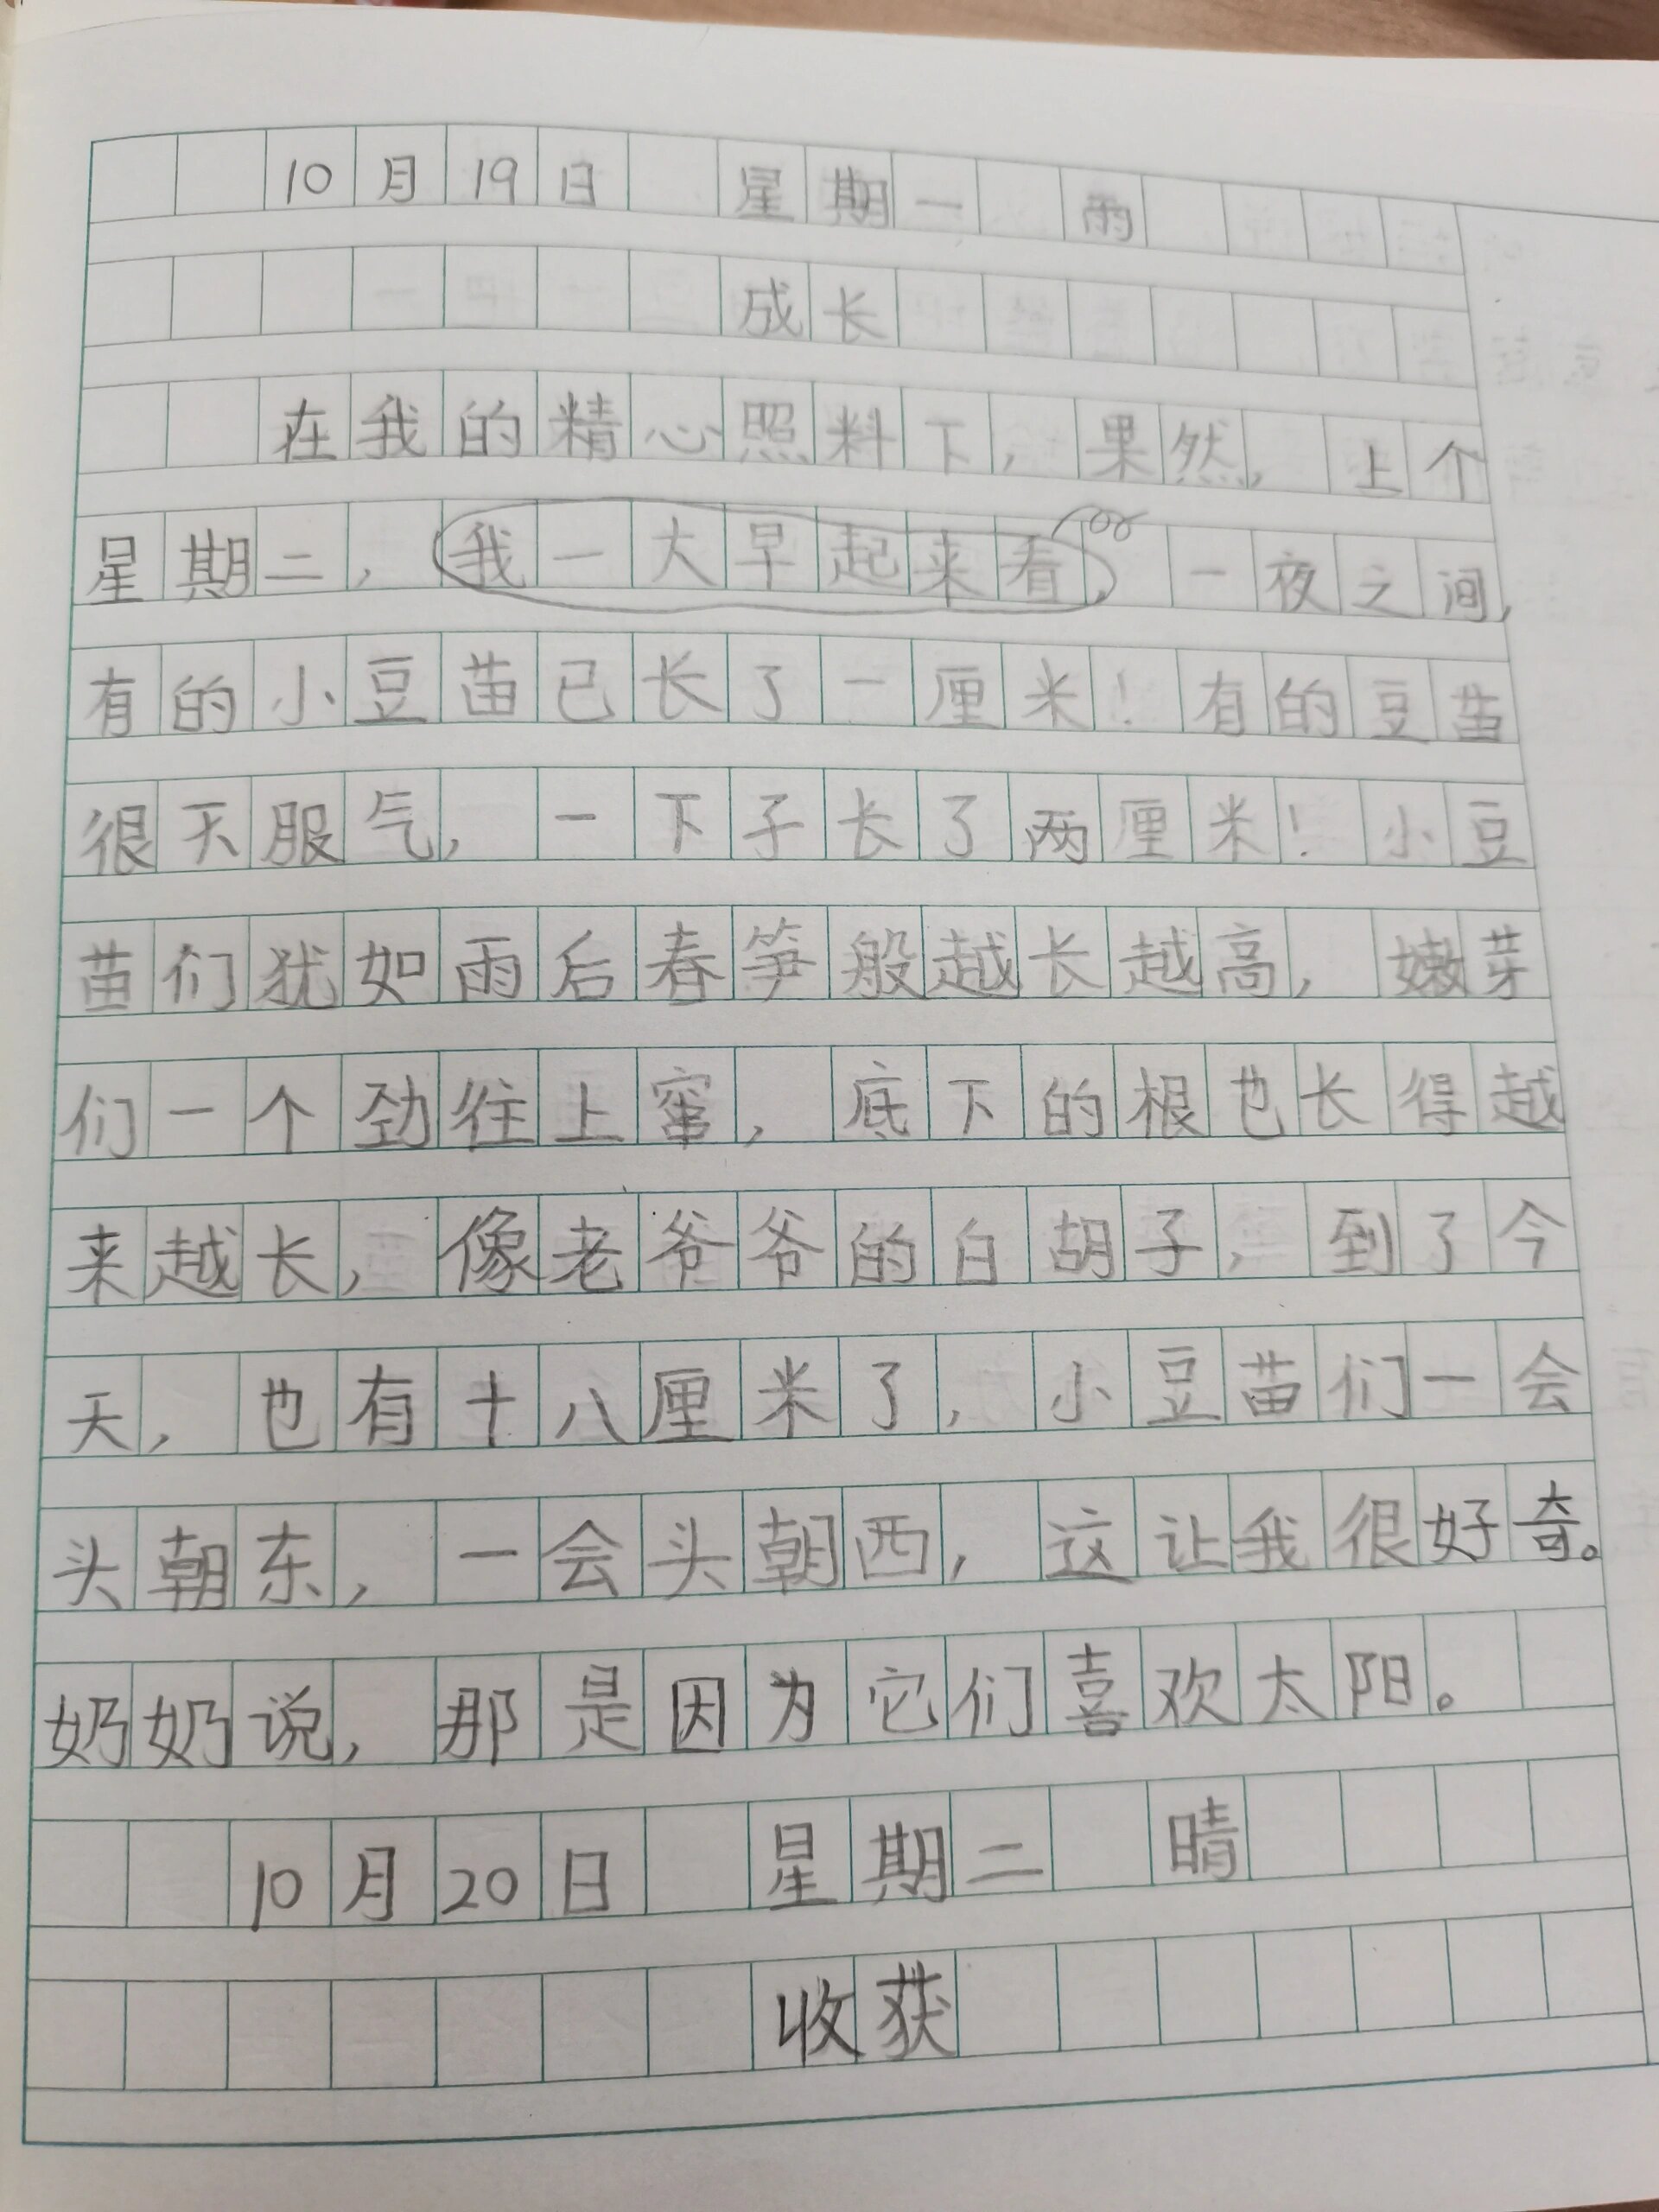 10月19日 星期一 雨
成长
在我的精心照料下，果然，上个
星期二，我一大早起来看，一夜之间，
有的小豆苗已长了一厘米！有的豆苗
很天服气，一下子长了两厘米！小豆
苗们犹如雨后春笋般越长越高，嫩芽
们一个劲往上窜，底下的根也长得越
来越长，像老爷爷的白胡子，到了今
天，也有十八厘米了，小豆苗们一会
头朝东，一会头朝西，这让我很好奇。
奶奶说，那是因为它们喜欢太阳。
10月20日 星期二 晴
收获